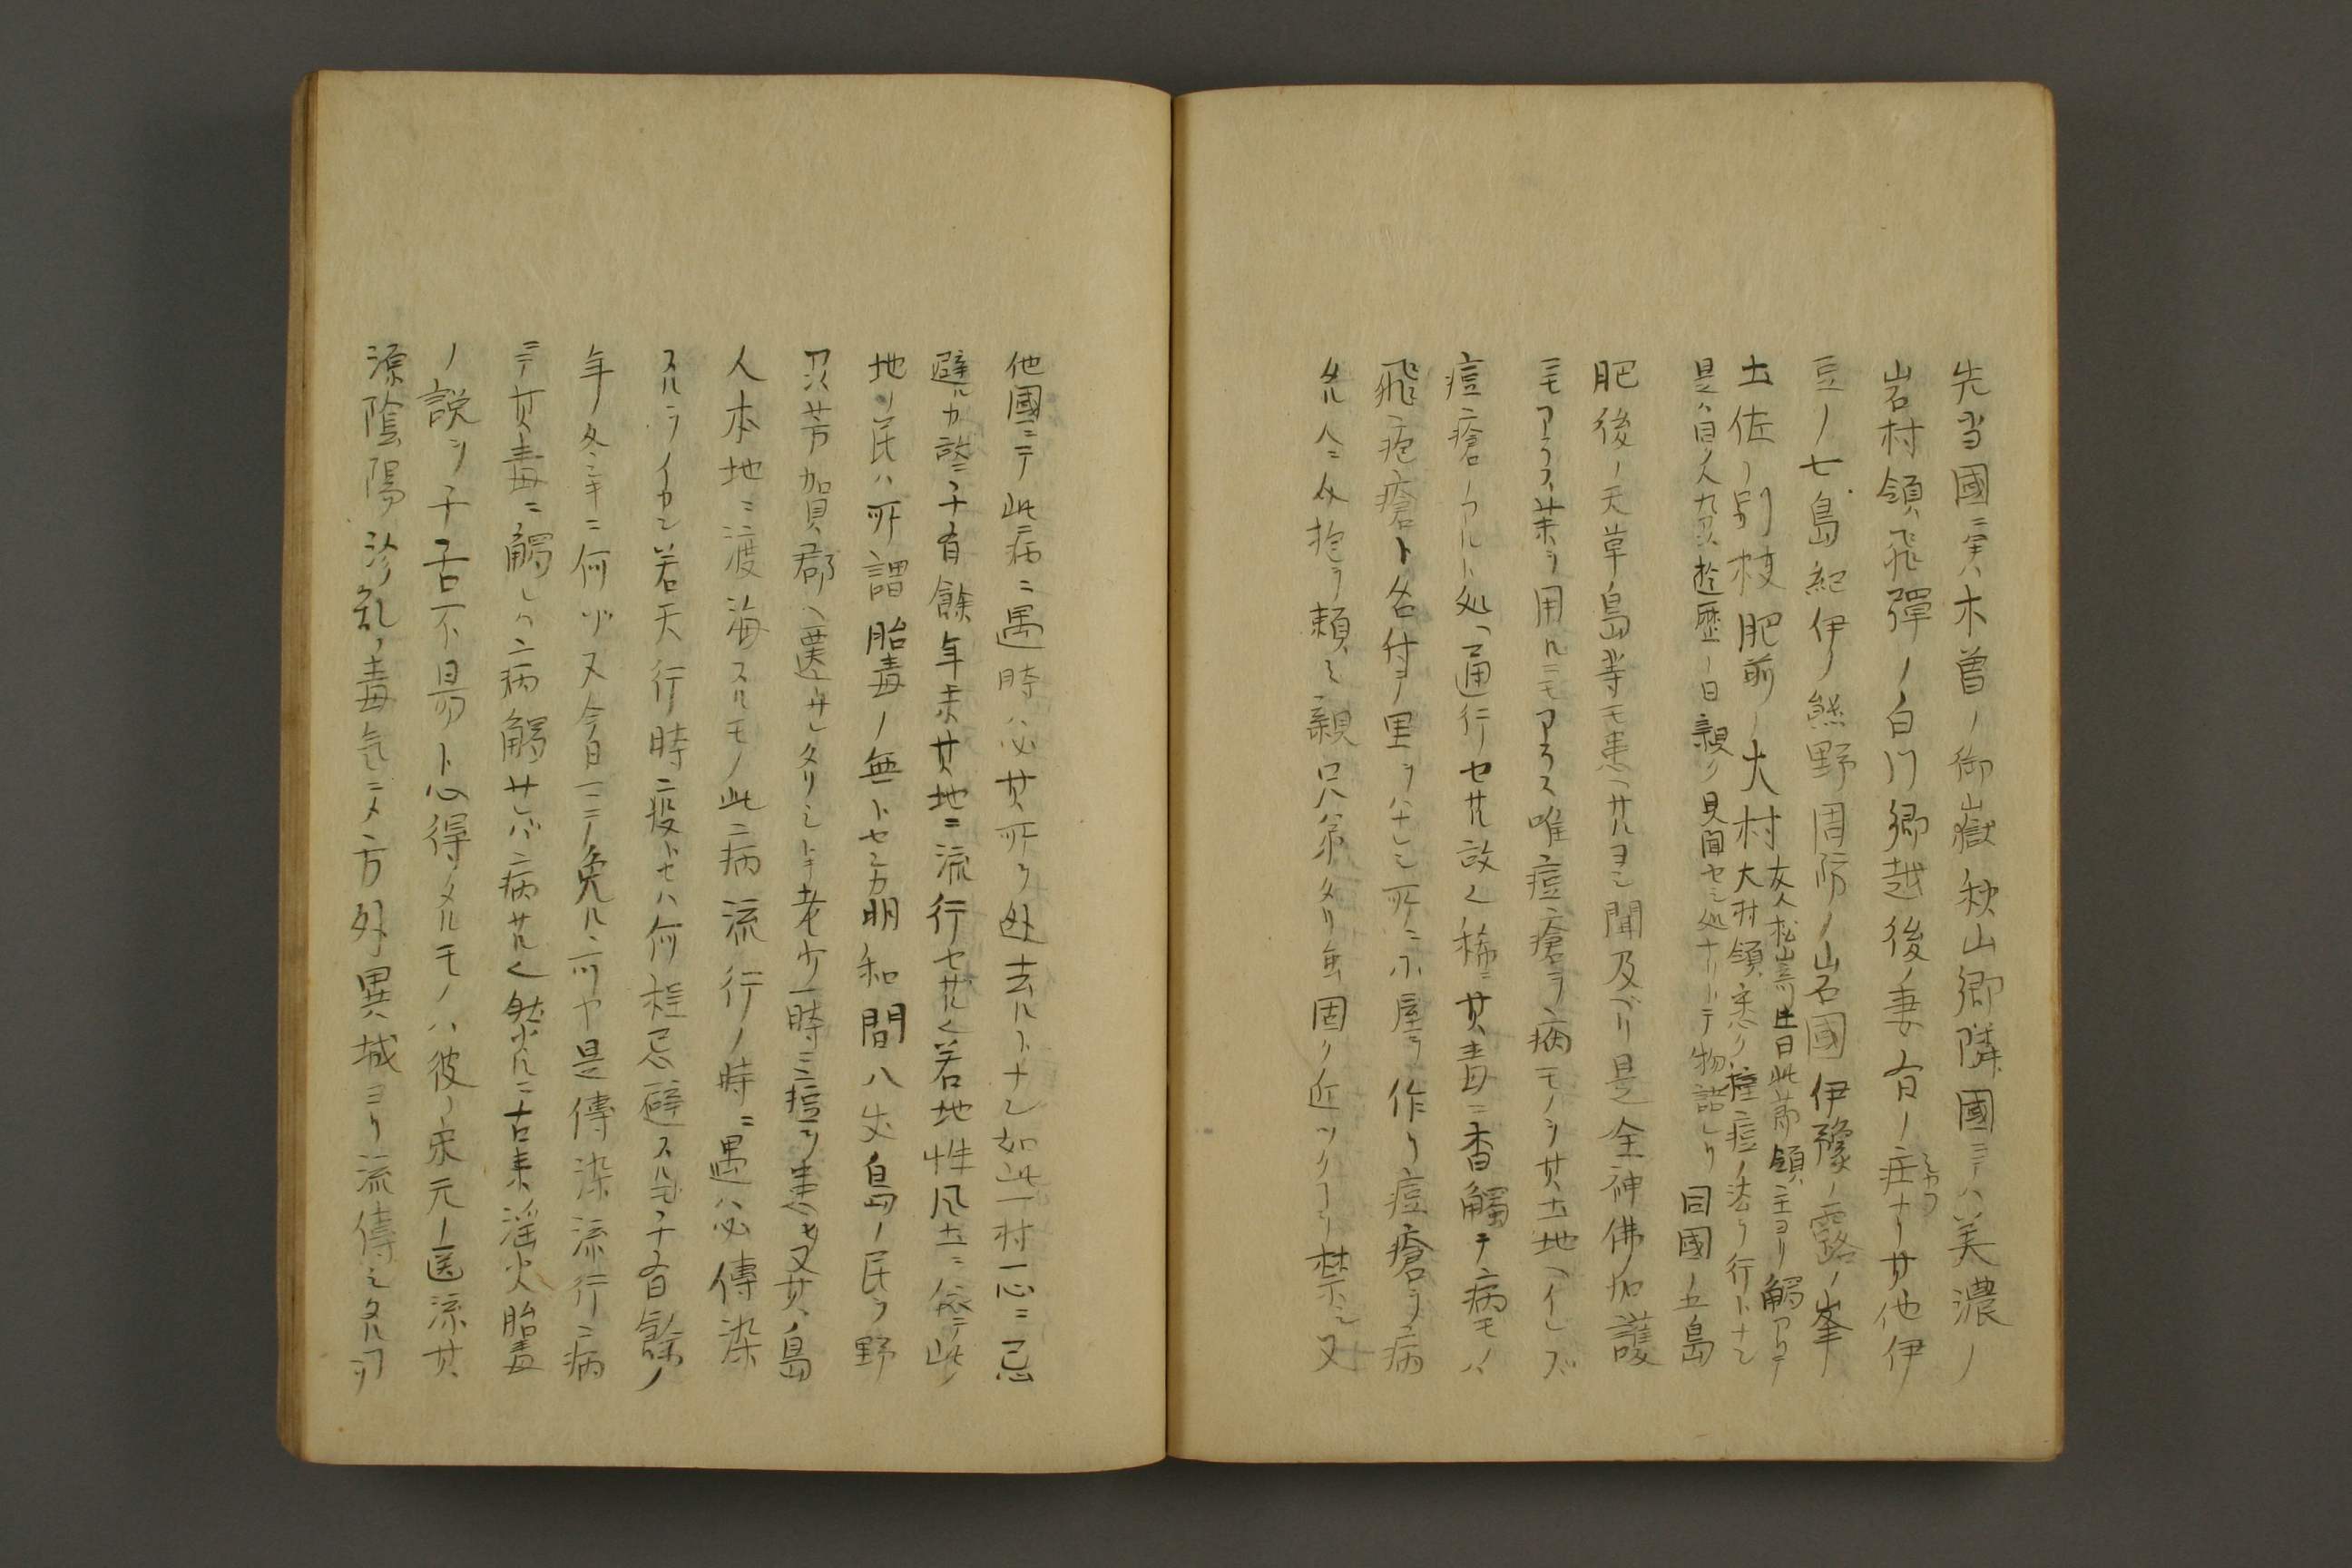 先当國ニ実ハ木曽ノ御嶽秋山郷隣國ニテハ美濃ノ
岩村領飛彈ノ白川郷越後ノ妻有ノ庄ナリ其他伊
豆ノ七島紀伊ノ熊野周防ノ岩國伊豫ノ露ノ峯
土佐ノ別枝肥前ノ大村
友人松山壽庵曰此節領主ヨリ觸アリテ
大村領悉ク種痘ノ法ヲ行トナン
是ハ自ノ人九刕遊歴ノ日親ク見聞セシ処ナリトテ物語レリ
同國ノ五島
肥後ノ天草島等モ患ヘサルヨシ聞及ベリ是全神佛加護
ニモアラス藥ヲ用ルニモアラス唯痘瘡ヲ病モノヲ其土地ヘイレズ
痘瘡ノアル処ヘ通行セサル故ニ稀ニ其毒ニ香觸テ病モノハ
飛疱瘡ト名付テ人里ヲハナレシ所ニ小屋ヲ作リ痘瘡ヲ病
タル人ニ介抱ヲ頼ミ親兄弟タリ𪜈固ク近ツク丁ヲ禁シ又
他國ニテ此病ニ遇時ハ必其所ヲ迯去ルトナン如此一村一心ニ忌
避ルカ故ニ千有餘年来其地ニ流行セサル也若地性風土ニ依テ此
地ノ民ハ所謂胎毒ノ無トセンカ明和間八丈島ノ民ヲ野
刕芳賀郡ヘ遷サレタリシトキ老少一時ニ痘ヲ患タリ又其ノ島
人本地ニ渡海スルモノ此病流行ノ時ニ遇ハ必傳染
スルヲイカン若天行時疫トセハ何程忌避スルモ千有餘ノ
年ノ冬ニキニ何ゾ又今日マテ免ルヽ丁ヤ是傳染流行病
ニテ其毒ニ觸レハ病觸サレバ病サル也然ルニ古来淫火胎毒
ノ説ヲ千古不易ト心得タルモノハ彼ノ宋元ノ医流其
源陰陽診乱ノ毒気ニメ方外異域ヨリ流傳シタルヿヲ